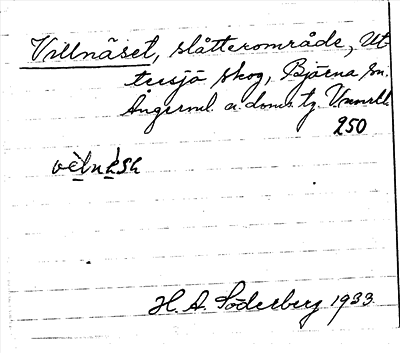 Villnäset, slåtterområde, Ut-
tersjö skog, Bjärna sn.
Ångerml. a. doms. tg.
250
H. A. Söderberg 1933